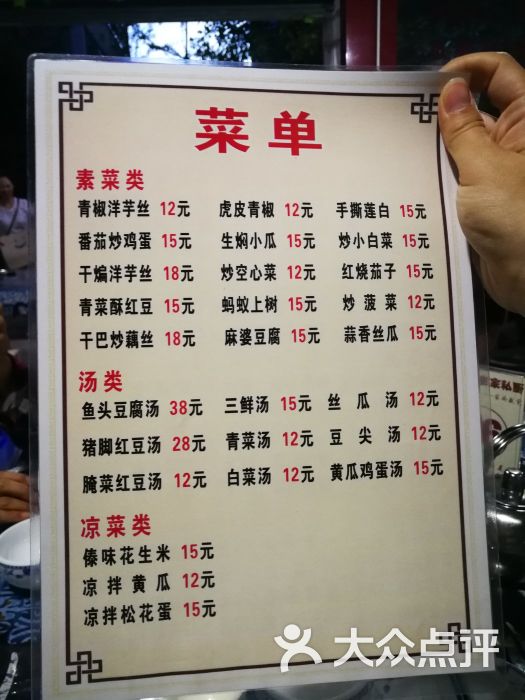 菜单
素菜类
青椒洋芋丝 12元 虎皮青椒 12元 手撕莲白 15元
番茄炒鸡蛋 15元 生焖小瓜 15元 炒小白菜 15元
干煸洋芋丝 18元 炒空心菜 12元 红烧茄子 15元
青菜酥红豆 15元 蚂蚁上树 15元 炒菠菜 12元
干巴炒藕丝 18元 麻婆豆腐 15元 蒜香丝瓜 15元
汤类
鱼头豆腐汤 38元 三鲜汤 15元 丝瓜汤 12元
猪脚红豆汤 28元 青菜汤 12元 豆尖汤 12元
腌菜红豆汤 12元 白菜汤 12元 黄瓜鸡蛋汤 15元
凉菜类
傣味花生米 15元
凉拌黄瓜 12元
凉拌松花蛋 15元
大众点评